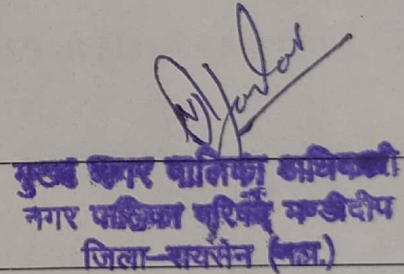 मुख्य नगर पालिका अधिकारी
नगर पालिका परिषद मण्डीदीप
जिला-रायसेन (म.प्र.)